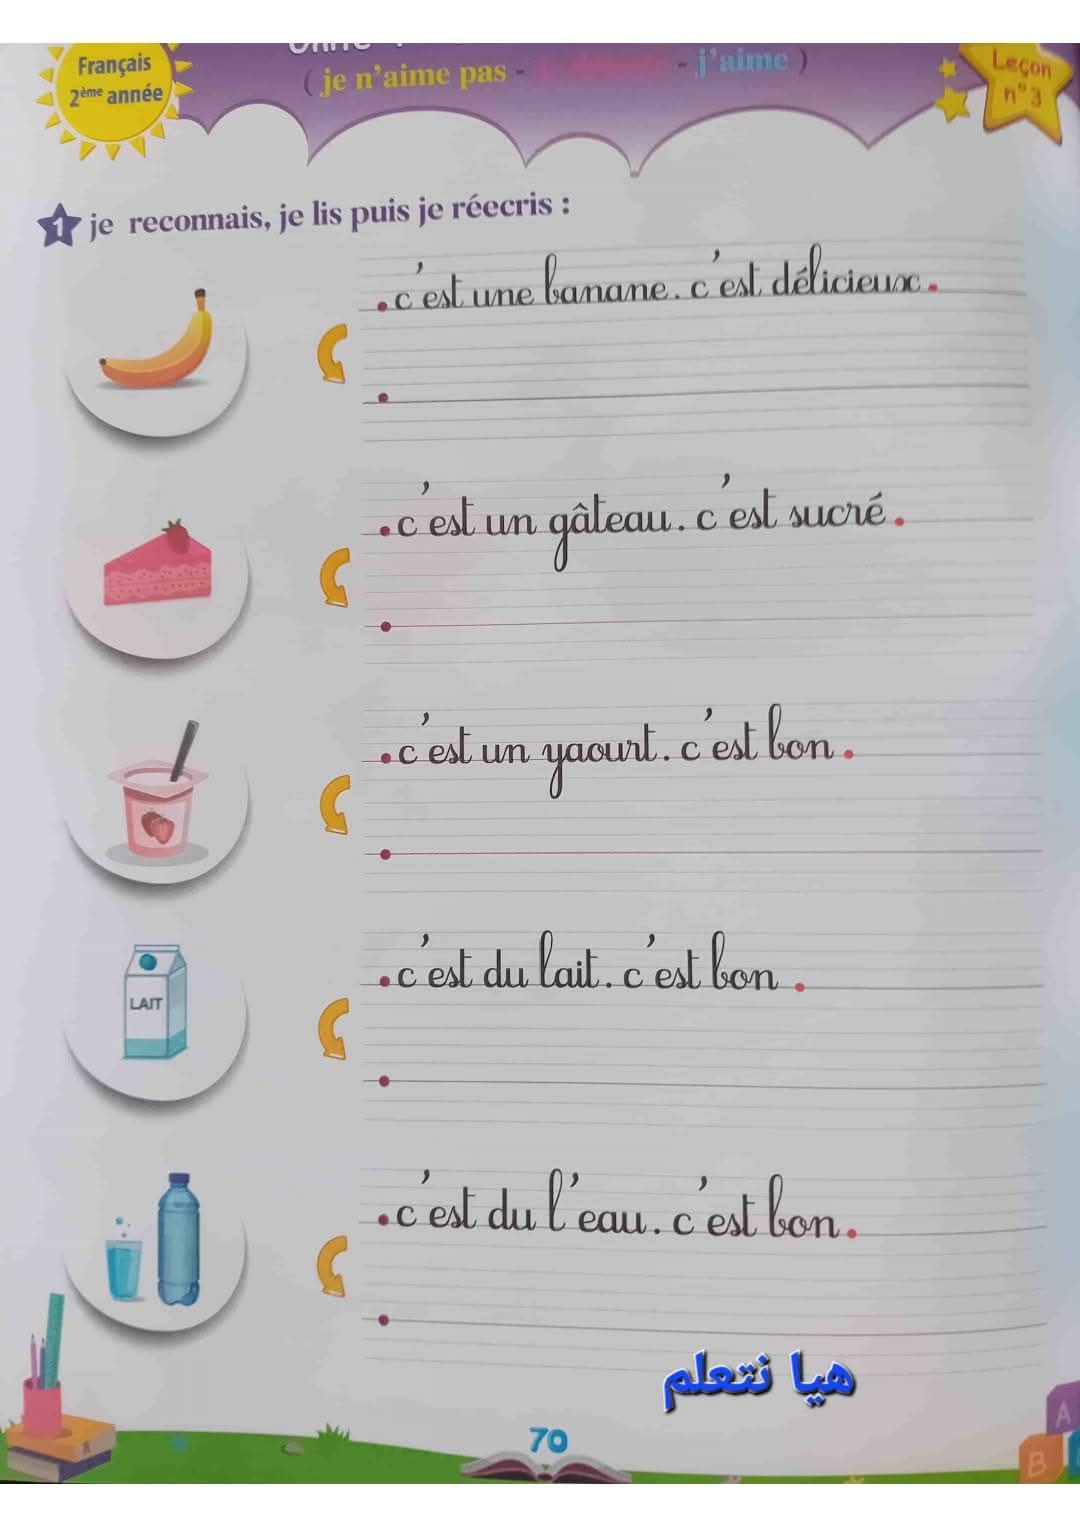 Français
2ème année
( je n'aime pas - - j'aime )
Leçon
n°3
1 je reconnais, je lis puis je réecris :
.c'est une banane. c'est délicieux.
.c'est un gâteau. c'est sucré.
.c'est un yaourt. c'est bon.
LAIT
.c'est du lait. c'est bon.
.c'est du l'eau. c'est bon.
هيا نتعلم
70
A
B